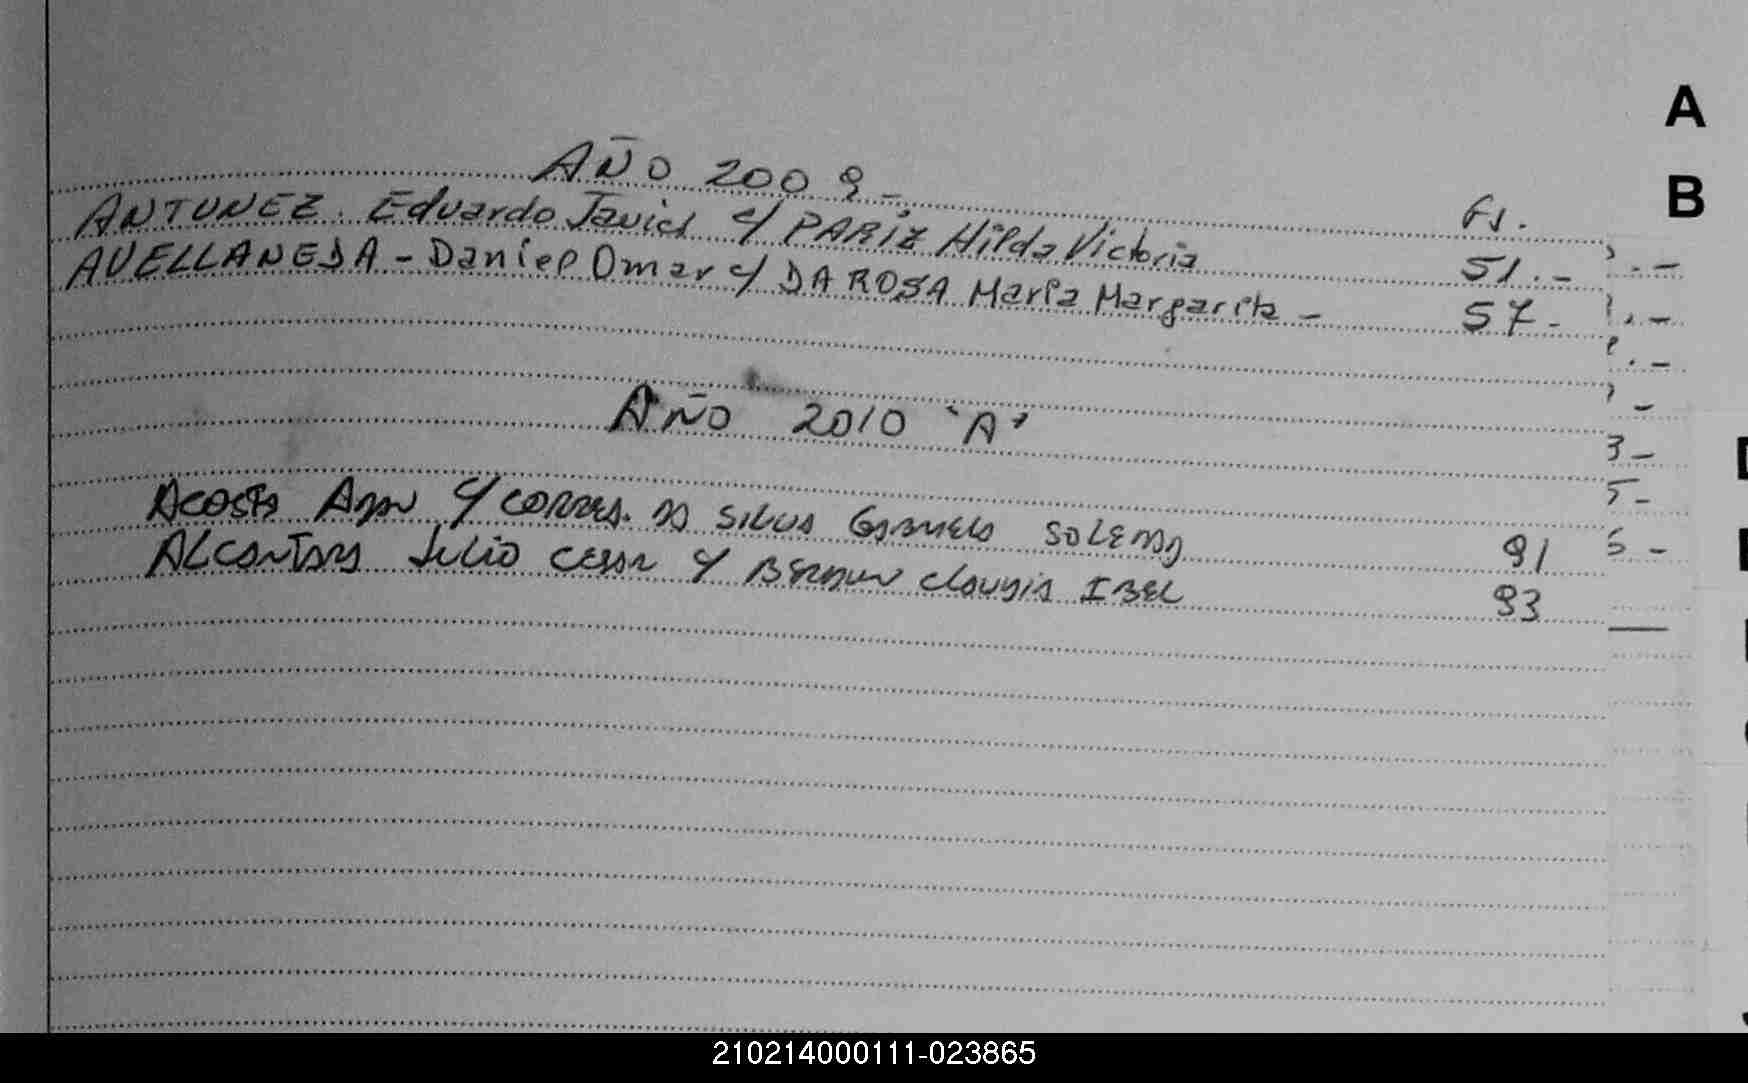 A
B
AÑO 2009.-
Fs.
ANTUNEZ. Eduardo Javier c/ PARIZ Hilda Victoria 51.-
AVELLANEDA - Daniel Omar c/ DA ROSA María Margarita - 57-
AÑO 2010 "A"
3-
5-
Acosta c/ Correa da Silva Gabriela Soledad 91
Alcantara Julio Cesar c/ Claudia Ibel 93
210214000111-023865